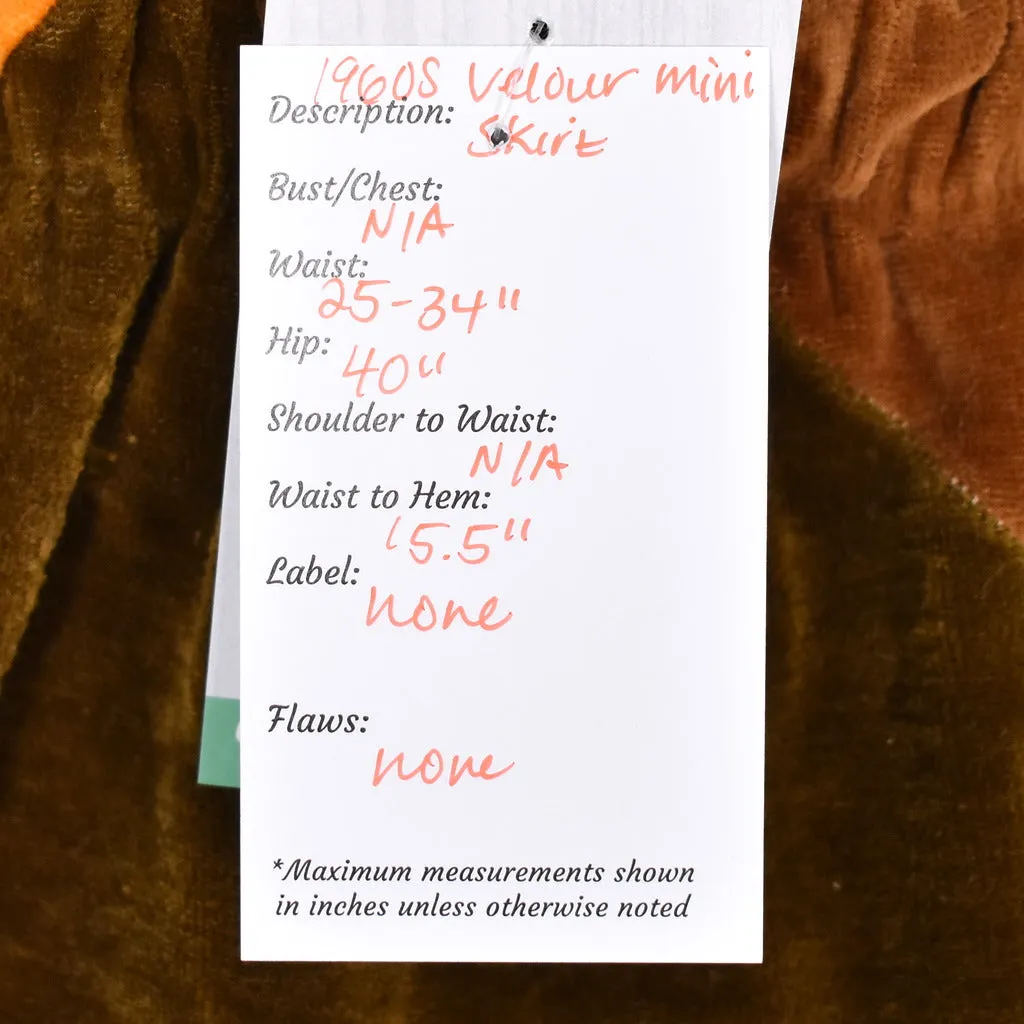 1960s Velour mini
Description:
Skirt
Bust/Chest:
N/A
Waist:
25-34"
Hip:
40"
Shoulder to Waist:
N/A
Waist to Hem:
15.5"
Label:
none
Flaws:
none
*Maximum measurements shown
in inches unless otherwise noted